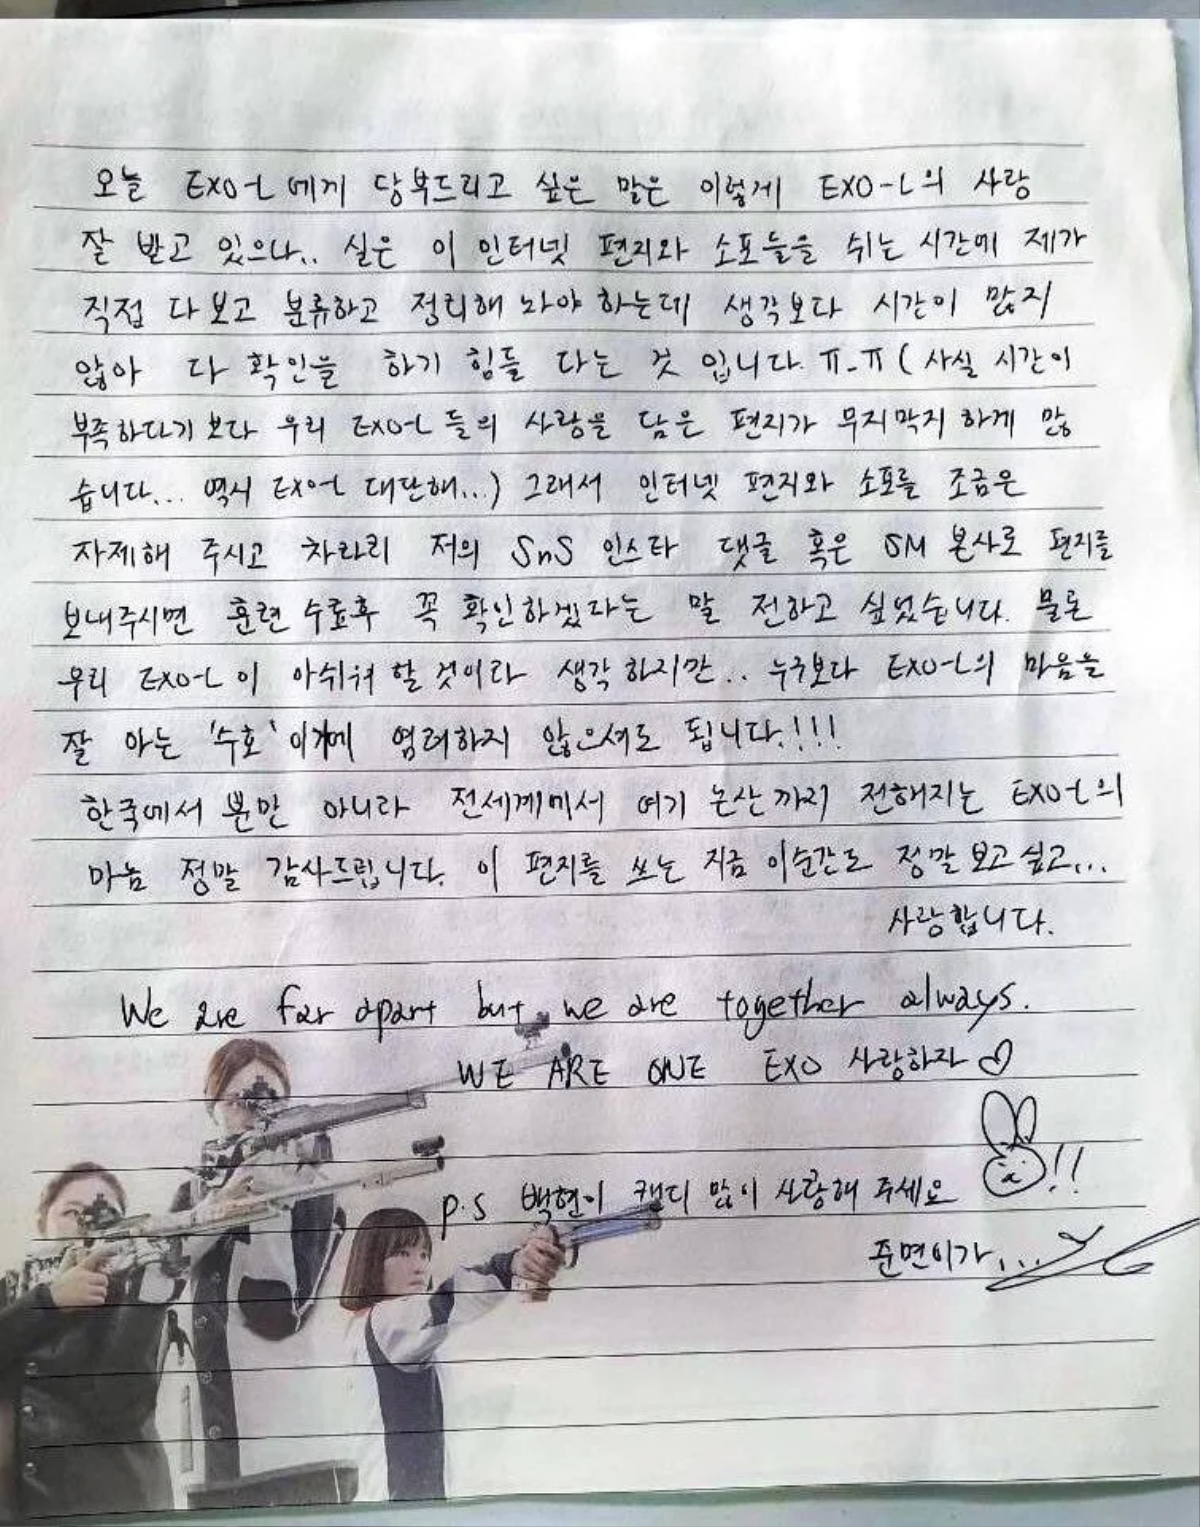 오늘 EXO-L에게 당부드리고 싶은 말은 이렇게 EXO-L의 사랑
잘 받고 있으나.. 실은 이 인터넷 편지와 소포들을 쉬는 시간에 제가
직접 다 보고 분류하고 정리해 놔야 하는데 생각보다 시간이 많지
않아 다 확인을 하기 힘들 다는 것 입니다. ㅠ_ㅠ ( 사실 시간이
부족하다기 보다 우리 EXO-L 들의 사랑을 담은 편지가 무지막지 하게 많
습니다... 역시 EXO-L 대단해...) 그래서 인터넷 편지와 소포를 조금은
자제해 주시고 차라리 저의 SnS 인스타 댓글 혹은 SM 본사로 편지를
보내주시면 훈련 수료후 꼭 확인하겠다는 말 전하고 싶었습니다. 물론
우리 EXO-L이 아쉬워 할 것이라 생각 하지만.. 누구보다 EXO-L의 마음을
잘 아는 '수호' 이기에 염려하지 않으셔도 됩니다.!!!
한국에서 뿐만 아니라 전세계에서 여기 논산까지 전해지는 EXO-L의
마음 정말 감사드립니다. 이 편지를 쓰는 지금 이순간도 정말 보고싶고...
사랑합니다.
We are far apart but we are together always.
WE ARE ONE EXO 사랑하자 ♡
!!
p.s 백현이 캔디 많이 사랑해 주세요
준면이가...